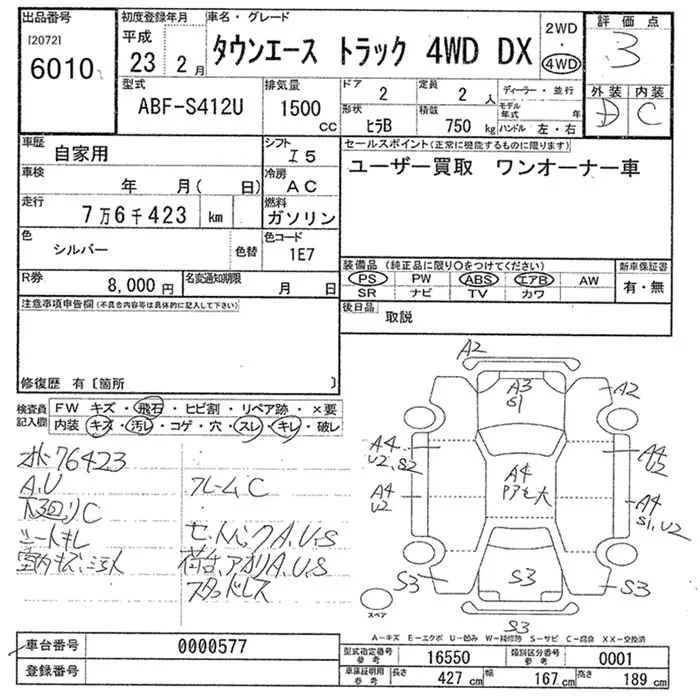 出品番号
[2072]
6010
初度登録年月
平成
23 2月
車名・グレード
タウンエース トラック 4WD DX
2WD
・
4WD
評価点
3
外装 内装
D C
型式
ABF-S412U
排気量
1500
CC
ドア
2
定員
2人
ディーラー・並行
形状
ヒラB
積載
750 kg
モデル
年式 年
ハンドル 左・右
車歴
自家用
シフト
I5
車検
年 月( 日)
冷房
AC
走行
7万6千423 km
燃料
ガソリン
色
シルバー
色替
色コード
1E7
R券
8,000円
名変通知期限
月 日
セールスポイント(正常に機能するものに限ります)
ユーザー買取 ワンオーナー車
装備品(純正品に限り〇をつけてください)
PS PW ABS エアB AW
SR ナビ TV カワ
新車保証書
有・無
後日品
取説
注意事項申告欄(不具合内容等は具体的に記入して下さい)
修復歴 有〔箇所 〕
検査員
記入欄
FW キズ・飛石・ヒビ割・リペア跡・×要
内装 キズ・汚レ・コゲ・穴・スレ・キレ・破レ
76423
A.U
下回りC
シートキレ
フレームC
A.U.S
荷台、アオリA.U.S
スタッドレス
A2
A3
S1
A2
A4
U2,S2
A4
U2
A4
A4
U2
A4
S1,U2
S3
S3
S3
S3
スペア
A-キズ E-エクボ U-凹み W-補修跡 S-サビ C-腐食 XX-交換済
車台番号
0000577
登録番号
型式指定番号
参考
16550
類別区分番号
参考
0001
車庫証明用
参考
長さ
427 cm
幅
167 cm
高さ
189 cm